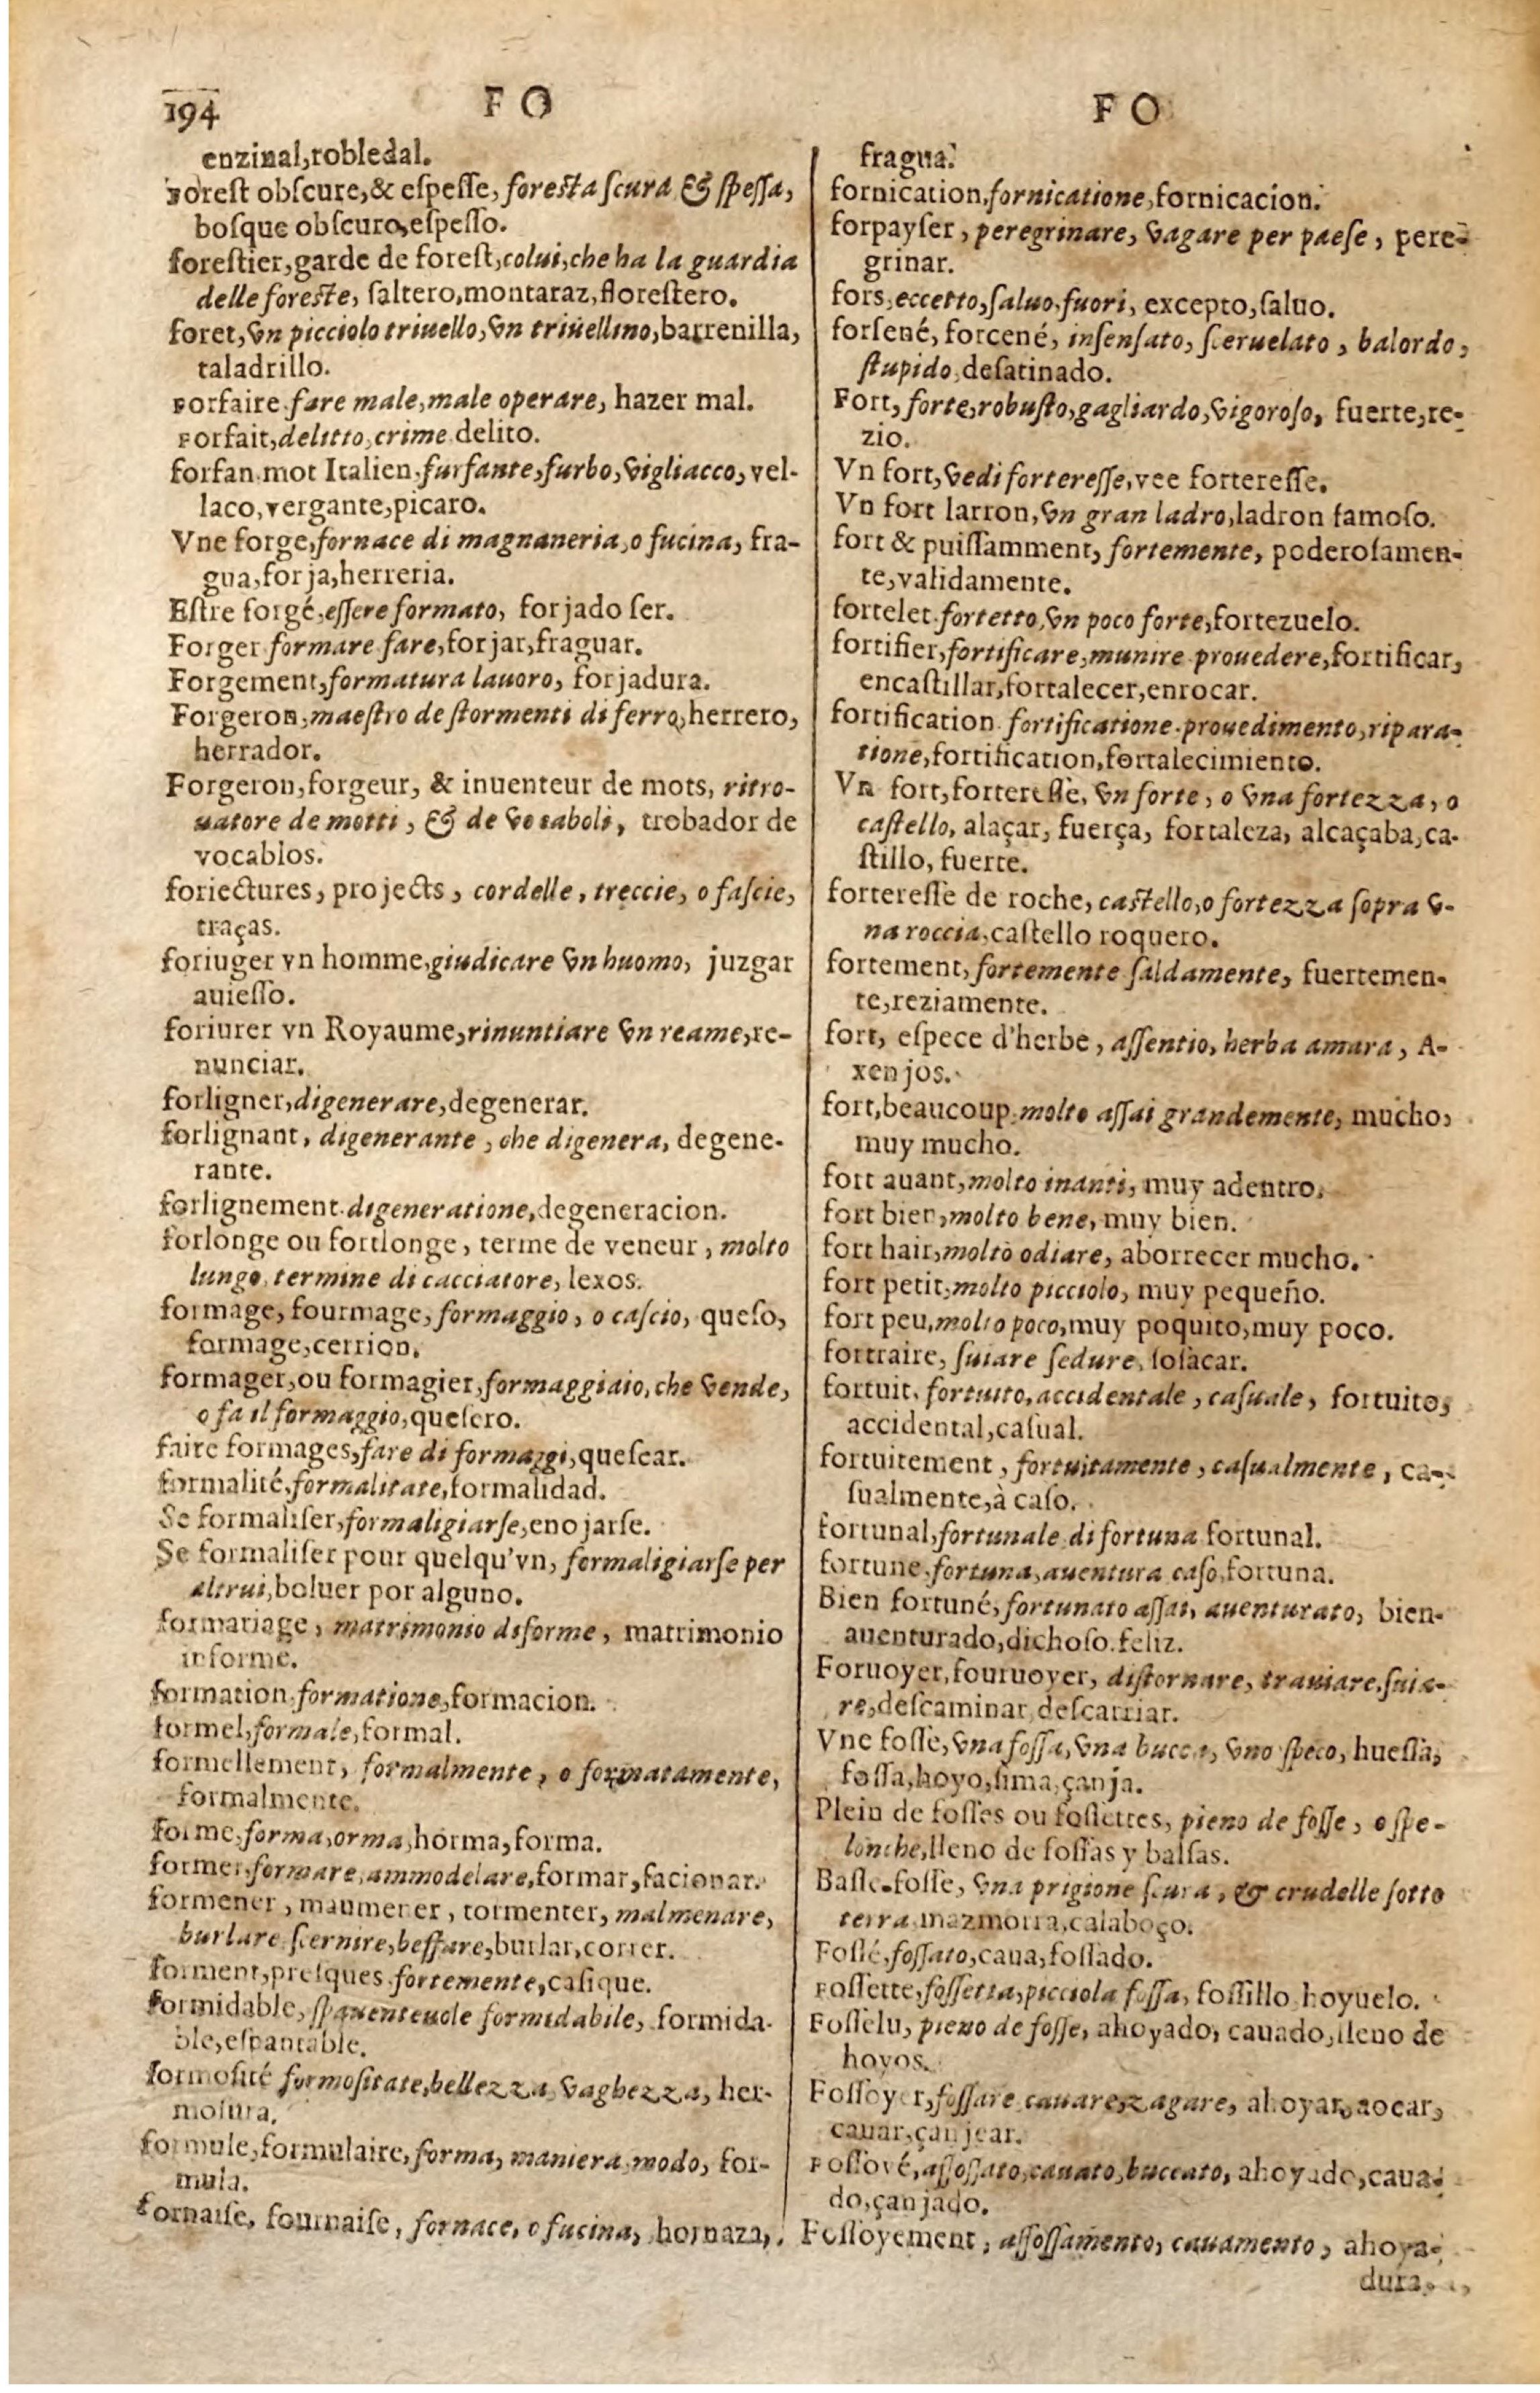 194
F O
enzinal, robledal.
Forest obſcure, & eſpeſſe, foresta ſcura & ſpeſſa,
boſque obſcuro, eſpeſſo.
foreſtier, garde de foreſt, colui, che ha la guardia
delle foreste, ſaltero, montaraz, floreſtero.
foret, vn picciolo triuello, vn triuellino, barrenilla,
taladrillo.
Forfaire, fare male, male operare, hazer mal.
Forfait, delitto, crime, delito.
forfan, mot Italien, furfante, furbo, vigliacco, vel-
laco, vergante, picaro.
Vne forge, fornace di magnaneria, o fucina, fra-
gua, forja, herreria.
Eſtre forgé, eſſere formato, forjado ſer.
Forger formare fare, forjar, fraguar.
Forgement, formatura lauoro, forjadura.
Forgeron, maeſtro de ſtormenti di ferro, herrero,
herrador.
Forgeron, forgeur, & inuenteur de mots, ritro-
uatore de motti, & de vocaboli, trobador de
vocablos.
foriectures, projects, cordelle, treccie, o faſcie,
traças.
foriuger vn homme, giudicare vn huomo, juzgar
auieſſo.
foriurer vn Royaume, rinuntiare vn reame, re-
nunciar.
forligner, digenerare, degenerar.
forlignant, digenerante, che digenera, degene-
rante.
forlignement, digeneratione, degeneracion.
forlonge ou fortlonge, terme de veneur, molto
lungo, termine di cacciatore, lexos.
formage, fourmage, formaggio, o caſcio, queſo,
formage, cerrion.
formager, ou formagier, formaggiaio, che vende,
o fa il formaggio, queſero.
faire formages, fare di formaggi, queſear.
formalité, formalitate, formalidad.
Se formaliſer, formaligiarſe, enojarſe.
Se formaliſer pour quelqu'vn, formaligiarſe per
altrui, boluer por alguno.
formariage, matrimonio diforme, matrimonio
informe.
formation, formatione, formacion.
formel, formale, formal.
formellement, formalmente, o formatamente,
formalmente.
forme, forma, orma, horma, forma.
former, formare, ammodelare, formar, facionar.
formener, maumener, tormenter, malmenare,
burlare ſcernire, beffare, burlar, correr.
forment, preſques, fortemente, caſique.
formidable, ſpauenteuole formidabile, formida-
ble, eſpantable.
formoſité formoſitate, bellezza, vaghezza, her-
moſura.
formule, formulaire, forma, maniera, modo, for-
mula.
fornaiſe, fournaiſe, fornace, o fucina, hornaza,
F O
fragua.
fornication, fornicatione, fornicacion.
forpayſer, peregrinare, vagare per paeſe, pere-
grinar.
fors, eccetto, ſaluo, fuori, excepto, ſaluo.
forſené, forcené, inſenſato, ſceruelato, balordo,
ſtupido, deſatinado.
Fort, forte, robuſto, gagliardo, vigoroſo, fuerte, re-
zio.
Vn fort, vedi fortereſſe, vee fortereſſe.
Vn fort larron, vn gran ladro, ladron famoſo.
fort & puiſſamment, fortemente, poderoſamen-
te, validamente.
fortelet, fortetto, vn poco forte, fortezuelo.
fortifier, fortificare, munire prouedere, fortificar,
encaſtillar, fortalecer, enrocar.
fortification, fortificatione, prouedimento, ripara-
tione, fortification, fortalecimiento.
Vn fort, fortereſſe, vn forte, o vna fortezza, o
caſtello, alaçar, fuerça, fortaleza, alcaçaba, ca-
ſtillo, fuerte.
fortereſſe de roche, castello, o fortezza ſopra v-
na roccia, caſtello roquero.
fortement, fortemente ſaldamente, fuertemen-
te, reziamente.
fort, eſpece d'herbe, aſſentio, herba amara, A-
xenjos.
fort, beaucoup, molto aſſai grandemente, mucho,
muy mucho.
fort auant, molto inanti, muy adentro.
fort bien, molto bene, muy bien.
fort hair, molto odiare, aborrecer mucho.
fort petit, molto picciolo, muy pequeño.
fort peu, molto poco, muy poquito, muy poco.
fortraire, ſuiare ſedure, ſoſacar.
fortuit, fortuito, accidentale, caſuale, fortuito,
accidental, caſual.
fortuitement, fortuitamente, caſualmente, ca-
ſualmente, à caſo.
fortunal, fortunale di fortuna fortunal.
fortune, fortuna, auentura caſo, fortuna.
Bien fortuné, fortunato aſſai, auenturato, bien-
auenturado, dichoſo, feliz.
Foruoyer, fouruoyer, diſtornare, trauiare, ſuia-
re, deſcaminar, deſcarriar.
Vne foſſe, vna foſſa, vna bucca, vno ſpeco, hueſſa,
foſſa, hoyo, ſima, çanja.
Plein de foſſes ou foſſettes, pieno de foſſe, o ſpe-
lonche, lleno de foſſas y balſas.
Baſſe-foſſe, vna prigione ſcura, & crudelle ſotto
terra mazmorra, calaboço.
Foſſé, foſſato, caua, foſſado.
Foſſette, foſſetta, picciola foſſa, foſſillo, hoyuelo.
Foſſelu, pieno de foſſe, ahoyado, cauado, lleno de
hoyos.
Foſſoyer, foſſare cauare, zagare, ahoyar, aocar,
cauar, çanjear.
Foſſoyé, aſſoſſato, cauato, buccato, ahoyado, caua-
do, çanjado.
Foſſoyement, aſſoſſamento, cauamento, ahoya-
dura,